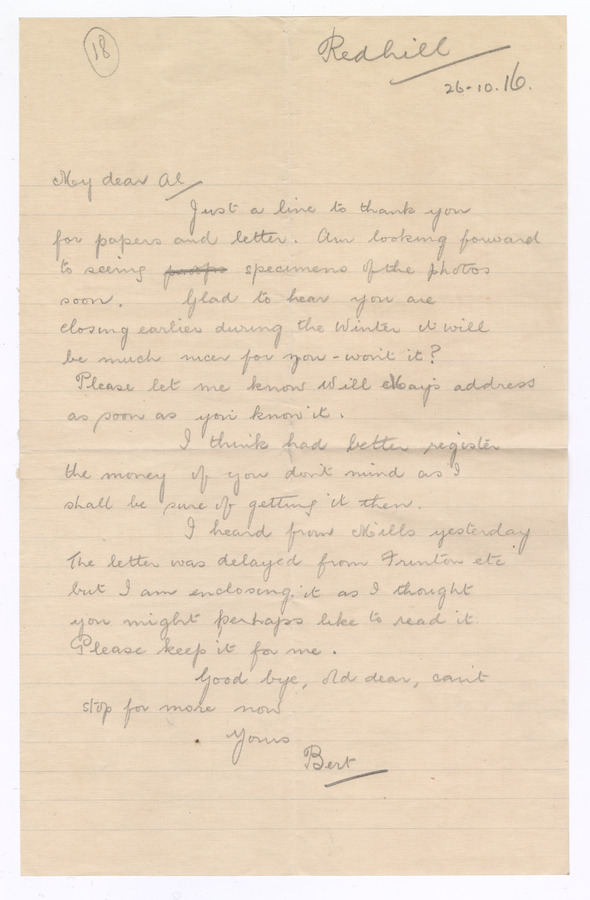 18
Redhill
26-10.16.
My dear Al
Just a line to thank you
for papers and letter. Am looking forward
to seeing specimens of the photos
soon. Glad to hear you are
closing earlier during the Winter it will
be much nicer for you - won't it?
Please let me know Will May's address
as soon as you know it.
I think had better register
the money if you don't mind as I
shall be sure of getting it then.
I heard from Mills yesterday
The letter was delayed from Frinton etc
but I am enclosing it as I thought
you might perhaps like to read it.
Please keep it for me.
Good bye, old dear, can't
stop for more now
Yours
Bert